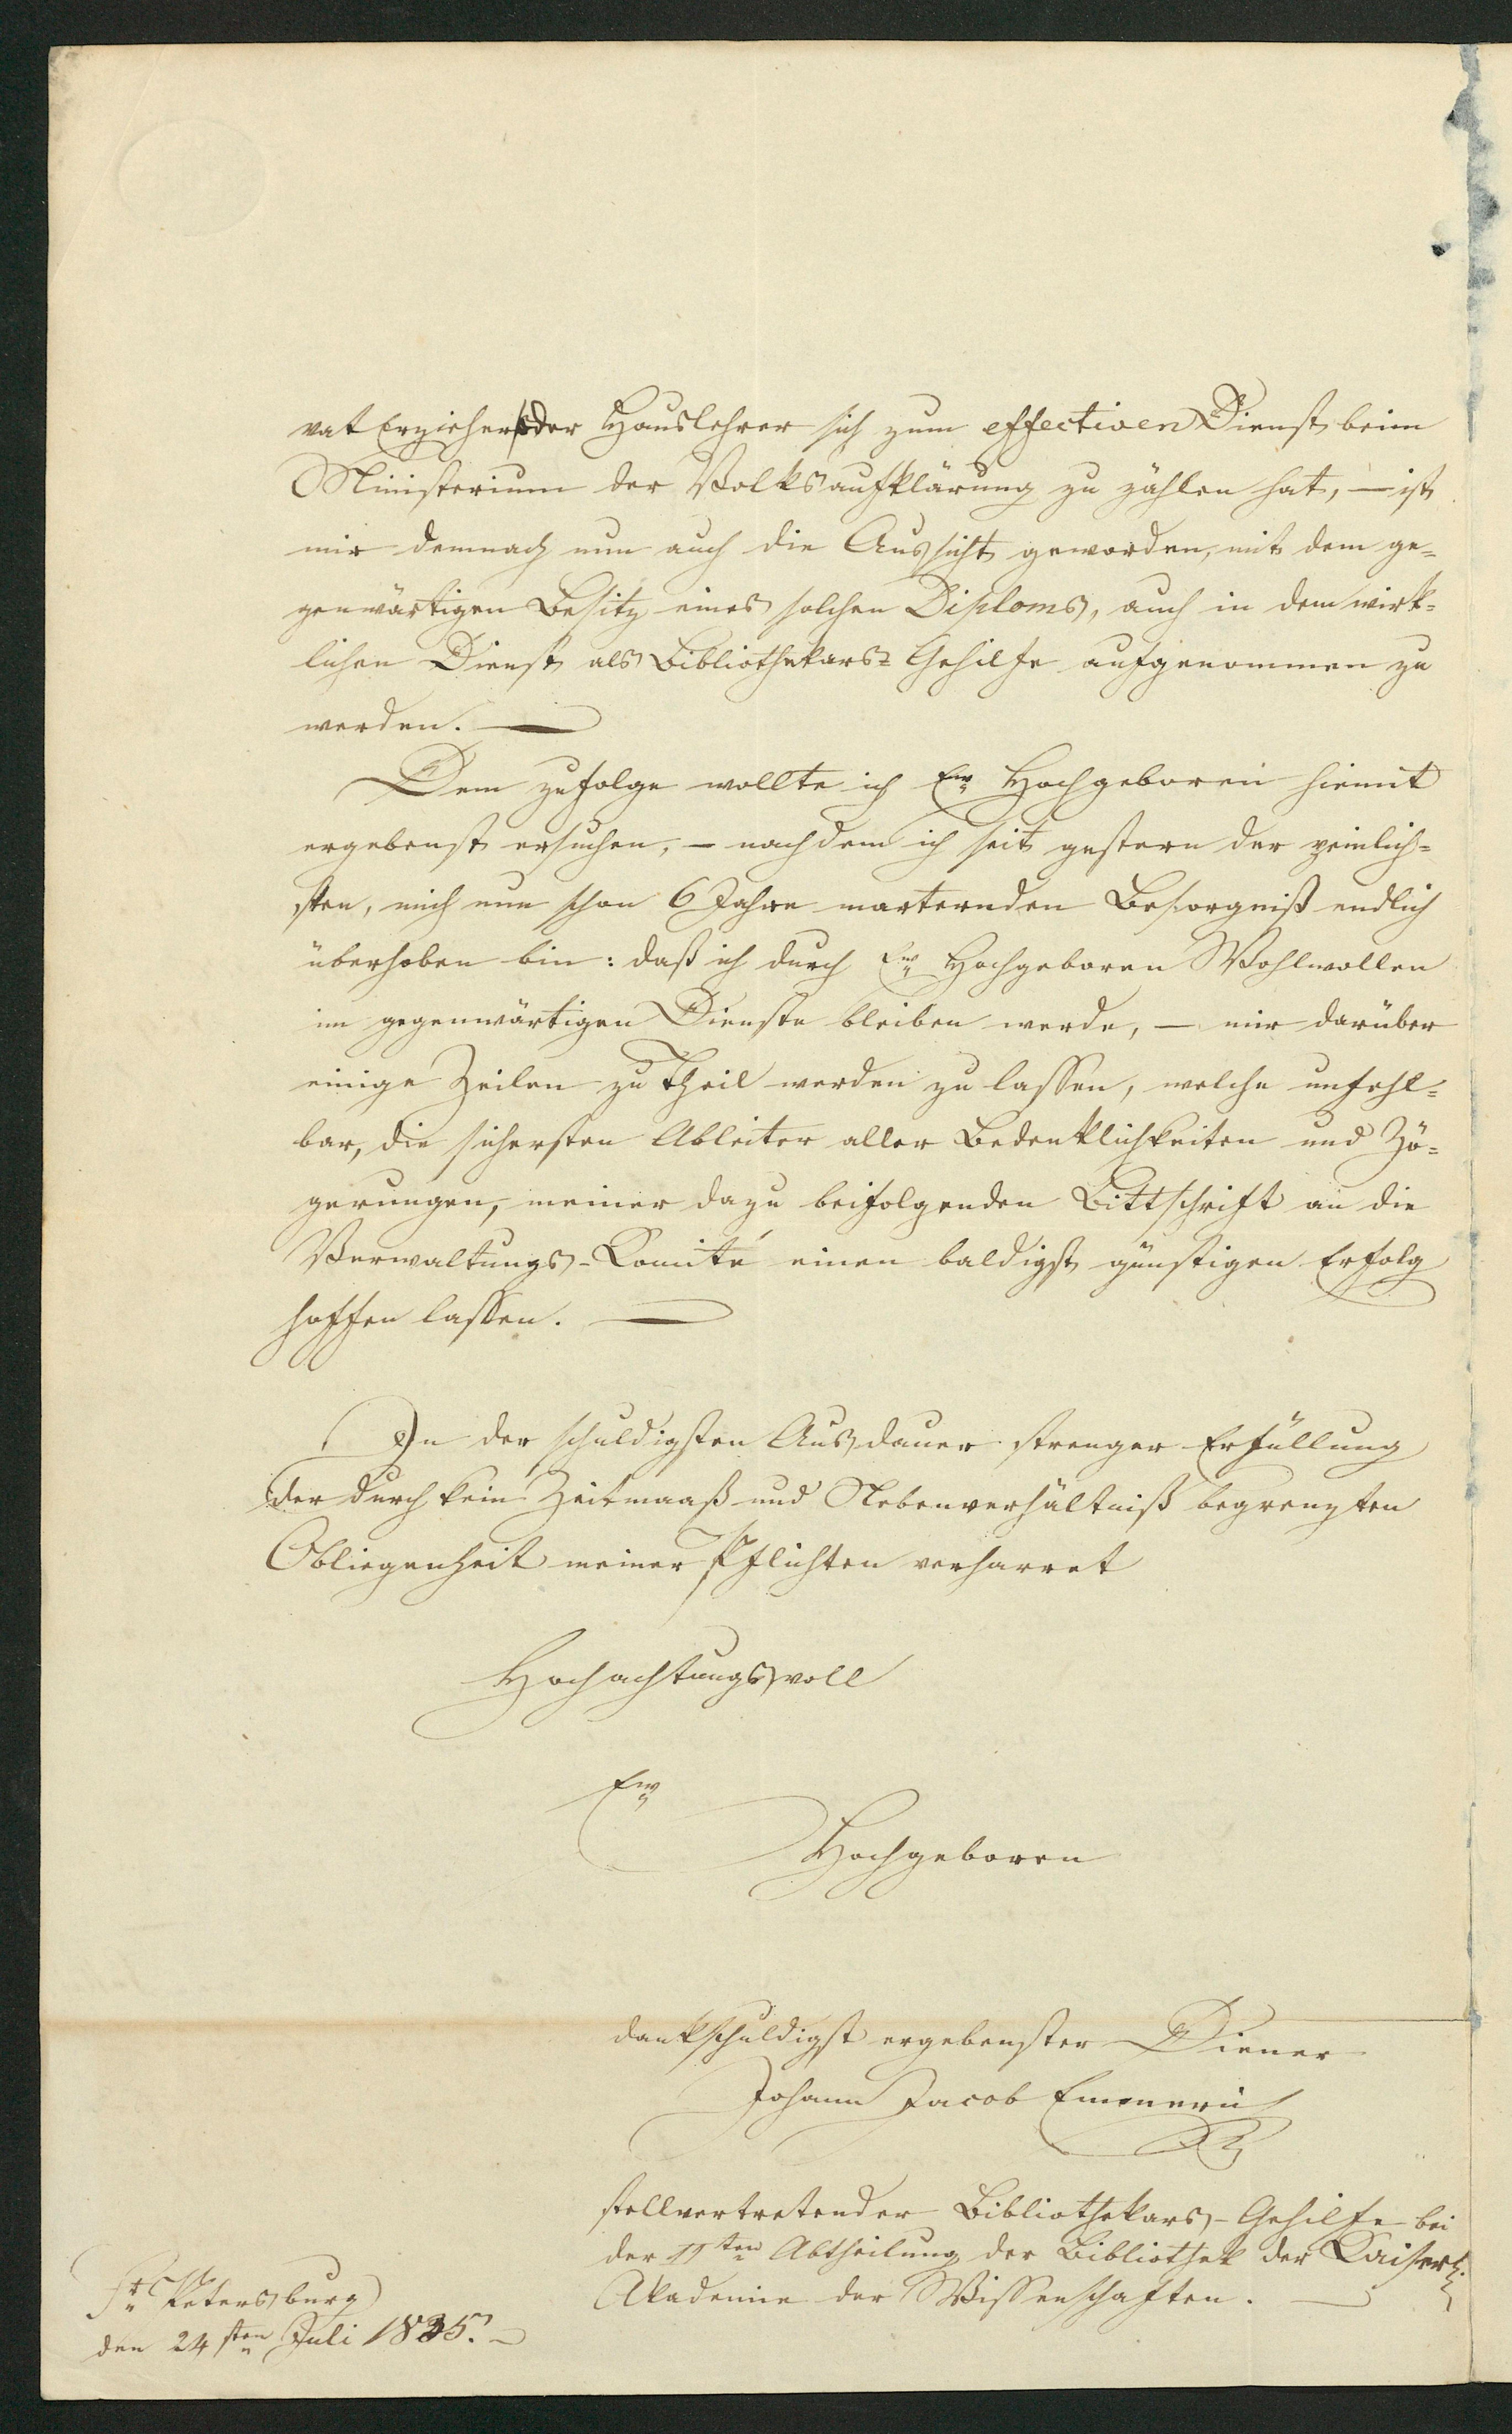 vat Erzieher oder Hauslehrer sich zum effectiven Dienst beim
Ministerium der Volksaufklärung zu zählen hat, — ist
mir demnach nun auch die Aussicht geworden, mit dem ge=
genwärtigen Besitz eines solchen Diploms, auch in dem wirk=
lichen Dienst als Bibliothekars= Gehilfe aufgenommen zu
werden. —
Dem zufolge wollte ich Ew Hochgeboren hiemit
ergebenst ersuchen, — nachdem ich seit gestern der peinlich=
sten, mich nun schon 6 Jahre marternden Besorgniß endlich
überhoben bin: daß ich durch Ew Hochgeboren Wohlwollen
im gegenwärtigen Dienste bleiben werde, — mir darüber
einige Zeilen zu Theil werden zu lassen, welche unfehl=
bar, die sichersten Ableiter aller Bedenklichkeiten und Zö=
gerungen, meiner dazu beifolgenden Bittschrift an die
Verwaltungs-Comité einen baldigst günstigen Erfolg
hoffen lassen. —
In der schuldigsten Ausdauer strenger Erfüllung
der durch kein Zeitmaaß und Nebenverhältniß begrenzten
Obliegenheit meiner Pflichten verharret
Hochachtungsvoll
Ew
Hochgeboren
dankschuldigst ergebenster Diener
Johann Jacob
stellvertretender Bibliothekars-Gehilfe bei
der 11ten Abtheilung der Bibliothek der Kaiserl:
Akademie der Wissenschaften. —
St Petersburg
den 24sten Juli 1835. —